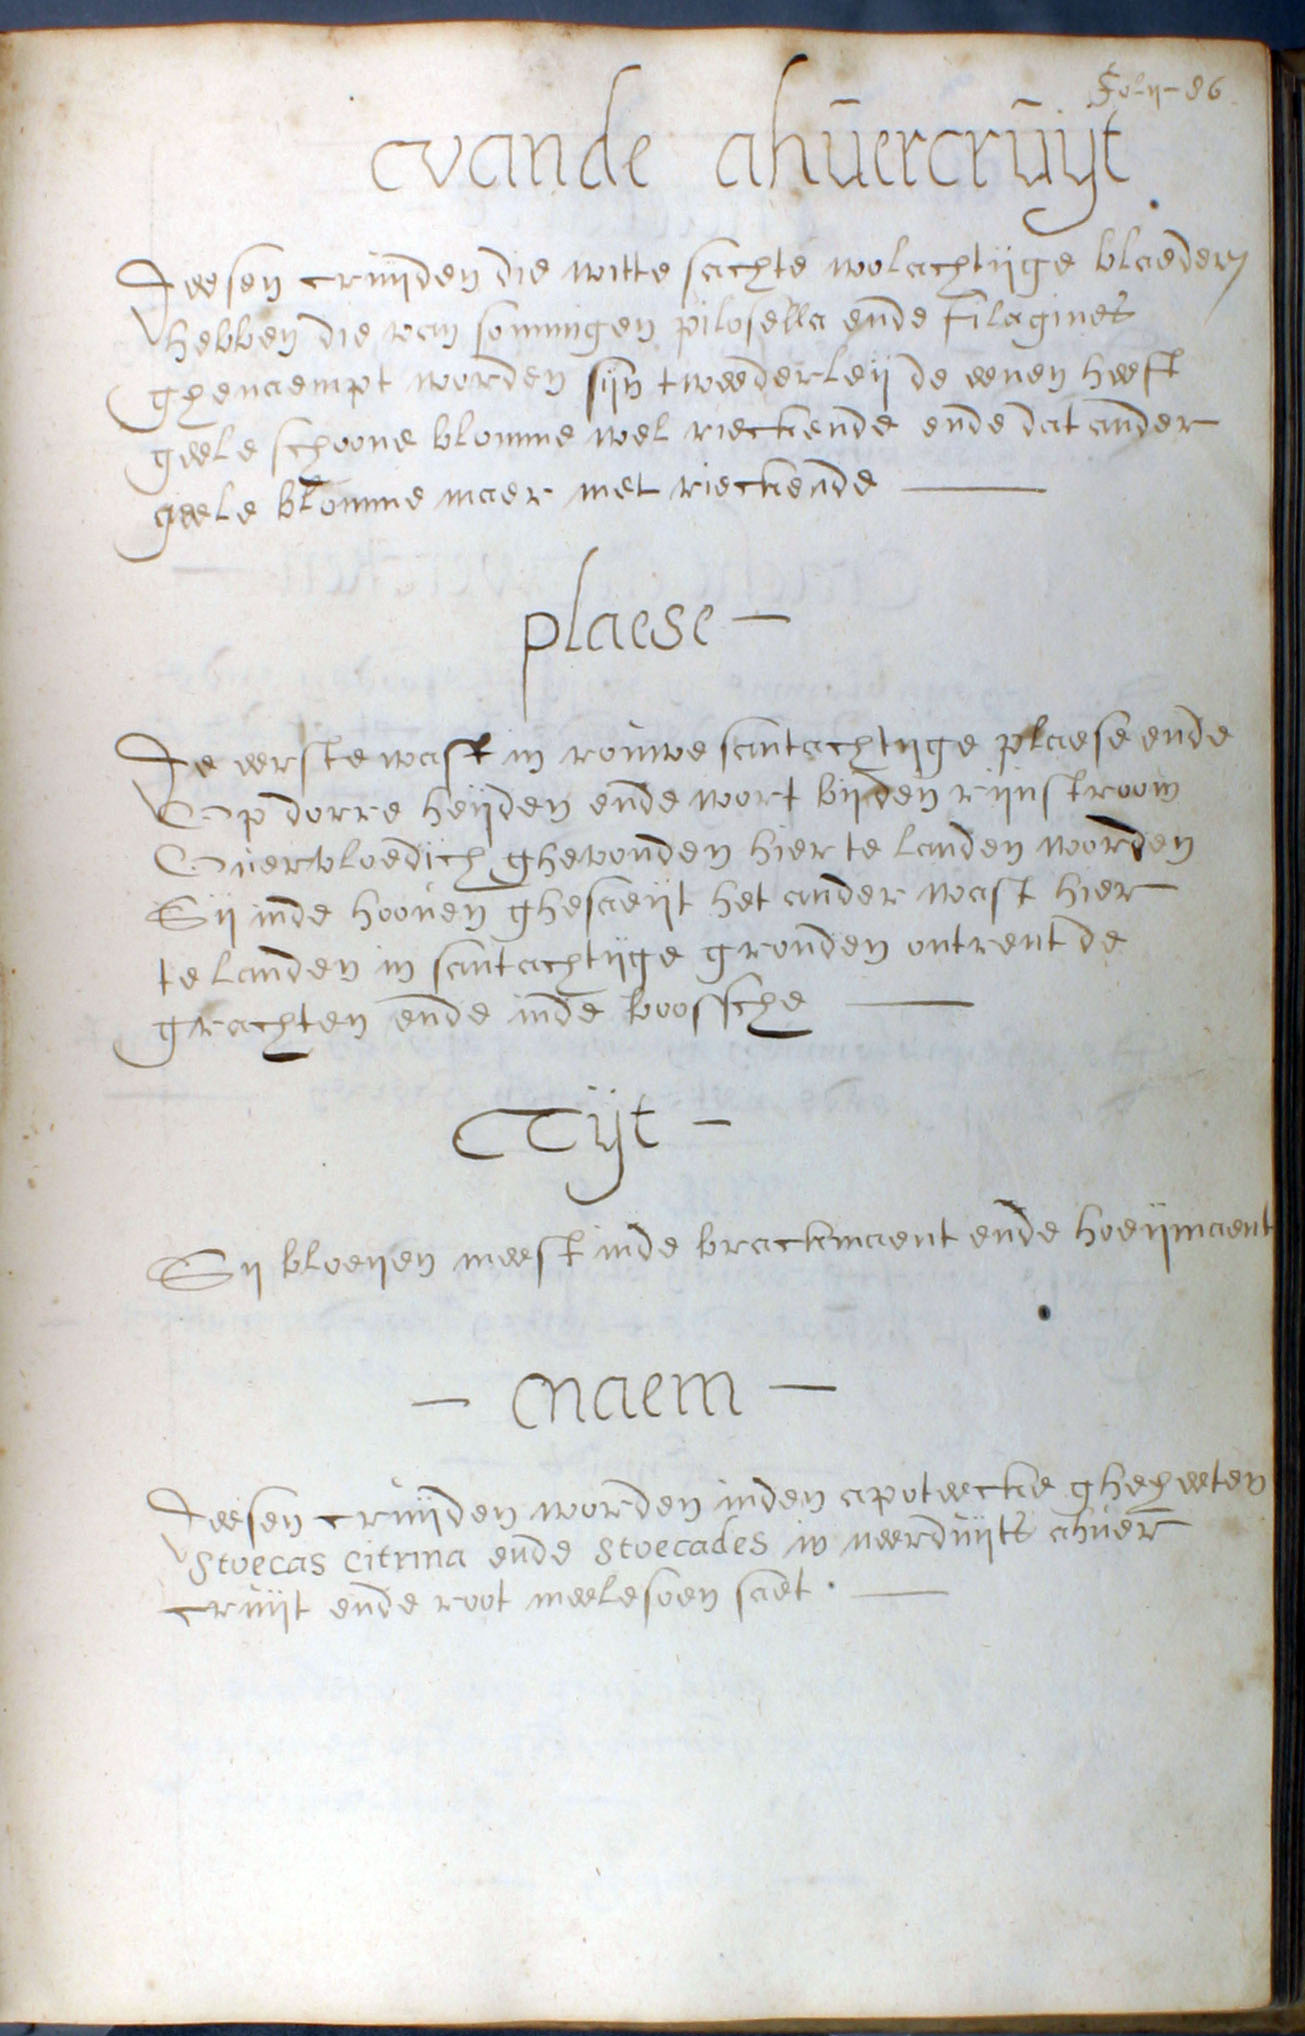 Foly-86
Vande ahuercruyt
Deesen cruijden die witte sachte wolachtijge blaederen
hebben die van sommigen pilosella ende Filagines
ghenaempt worden sijn tweederleij de eenen heeft
geele schoone blomme wel rieckende ende dat ander
geele blomme maer niet rieckende
plaese
De eerste wast in rouwe santachtijge plaese ende
Op dorre heijden ende wort bijden rijnstroom
Overvloedich ghevonden hier te landen worden
Sij inde hooven ghesaeijt het ander wast hier
te landen in santachtijge gronden ontrent de
grachten ende inde boossche
Tijt
Sij bloeijen meest inde brackmaent ende hoeijmaent
Naem
Deesen cruijden worden inden apoteecke gheheeten
Stoecas Citrina ende Stoecades in neerduijts ahuer
cruijt ende root meelesoen saet.